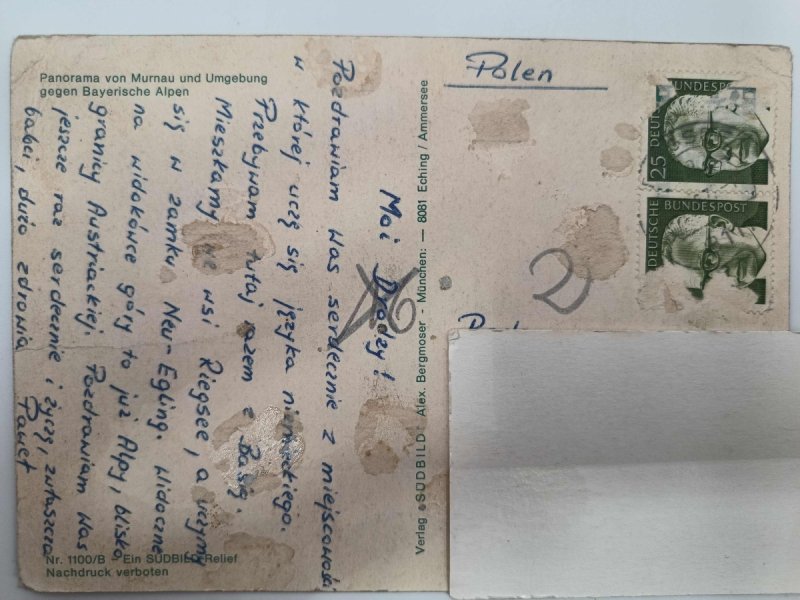 Panorama von Murnau und Umgebung
gegen Bayerische Alpen
Moi Drodzy!
Pozdrawiam Was serdecznie z miejscowości
w której uczę się języka niemieckiego.
Przebywam tutaj razem z Basią.
Mieszkamy we wsi Riegsee, a uczymy
się w zamku Neu-Egling. Widoczne
na widokówce góry to już Alpy, blisko
granicy Austriackiej. Pozdrawiam Was
jeszcze raz serdecznie i życzę, zwłaszcza
babci, dużo zdrowia
Paweł
Nr. 1100/B - Ein SÜDBILD-Relief
Nachdruck verboten
Verlag «SÜDBILD» Alex. Bergmoser - München: — 8081 Eching / Ammersee
Polen
25 DEUTSCHE BUNDESPOST
DEUTSCHE BUNDESPOST
2